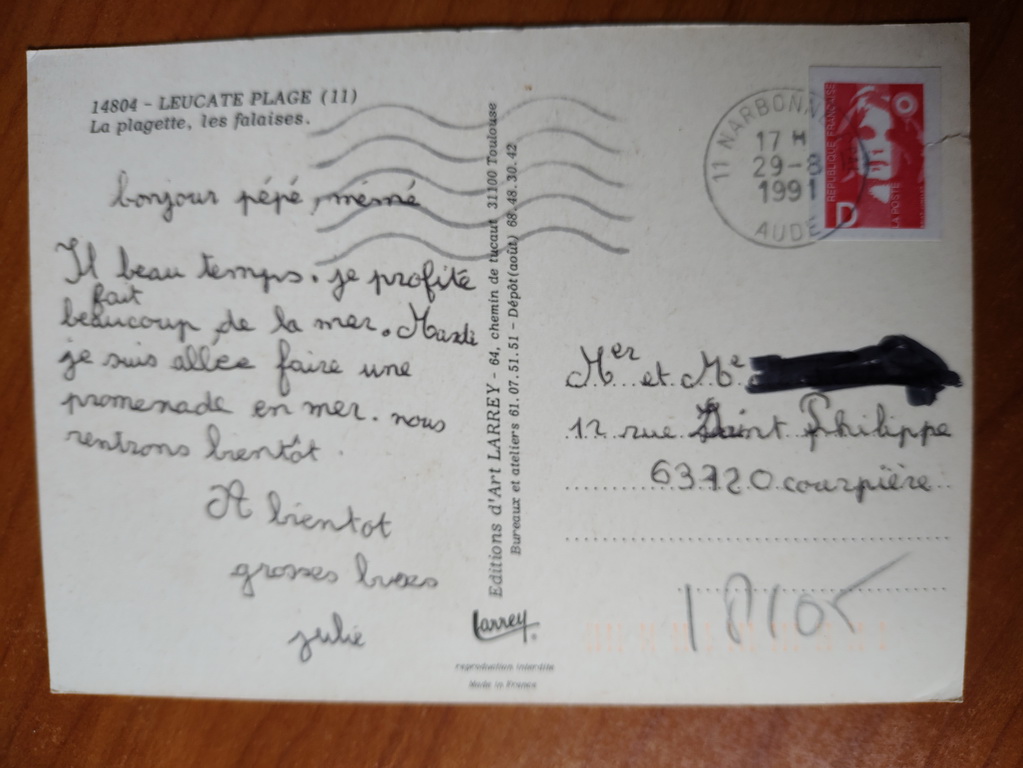 14804 - LEUCATE PLAGE (11)
La plagette, les falaises.
bonjour pépé, mémé
Il fait beau temps. je profite
beaucoup de la mer. Mardi
je suis allée faire une
promenade en mer. nous
rentrons bientôt.
A bientot
grosses bises
julie
Editions d'Art LARREY - 64, chemin de tucaut 31100 Toulouse
Bureaux et ateliers 61.07.51.51 - Dépôt (août) 68.48.30.42
Larrey
reproduction interdite
Made in France
11 NARBONNE
17 H
29-8
1991
AUDE
REPUBLIQUE FRANÇAISE
D
LA POSTE
Mer et Me
12 rue Saint Philippe
63720 courpière